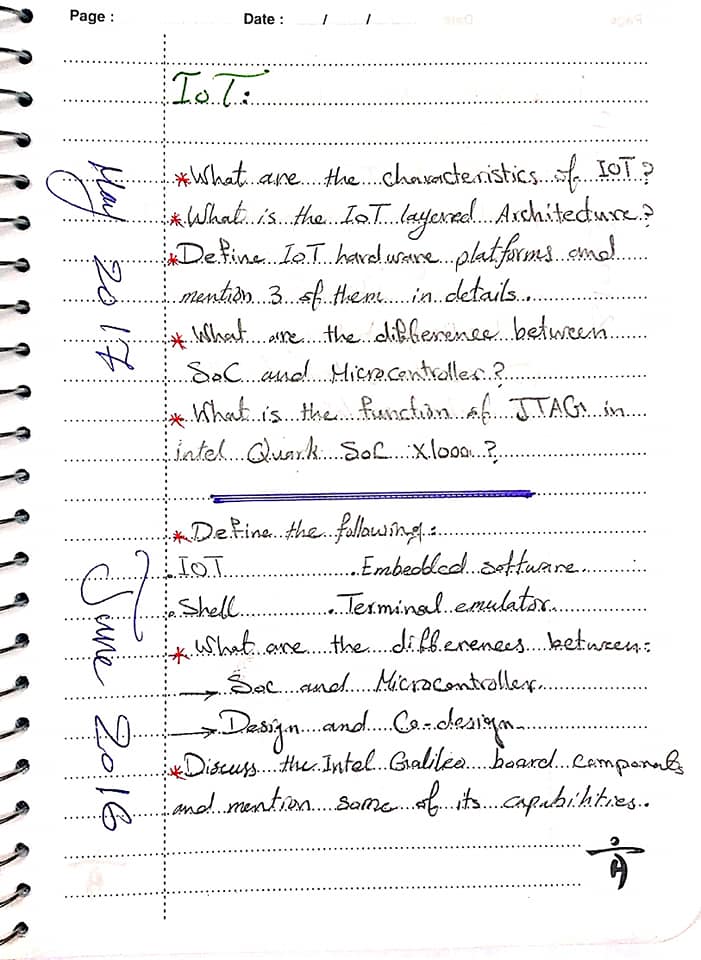 Page :
Date : / /
IoT:
May 2017
*What are the characteristics of IOT?
*What is the IoT layered Architecture?
*Define IoT hardware platforms and
mention 3 of them in details.
* What are the difference between
SoC and Microcontroller?
* What is the function of JTAG in
intel Quark SoC X1000 ?
June 2016
*Define the following:
.IOT .Embedded software.
.Shell .Terminal emulator.
* What are the differences between:
→ Soc and Microcontroller.
→ Design and Co-design
*Discuss the Intel Galileo board components
and mention some of its capabilities.